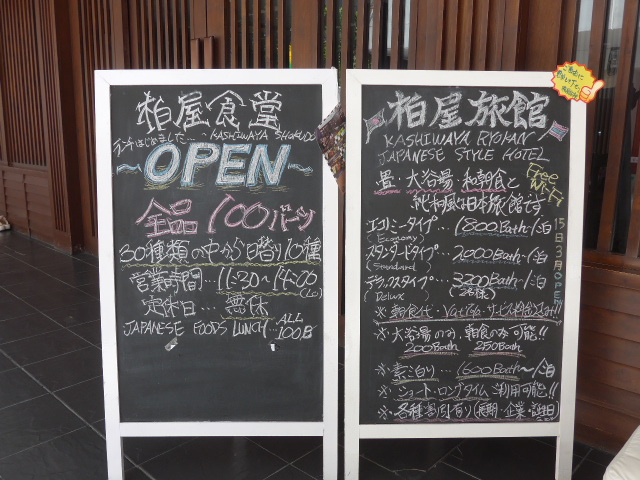 柏屋食堂
ランチはじめました... KASHIWAYA SHOKUDO
~OPEN~
全品 100バーツ
30種類の中から日替り10種
営業時間...11:30~14:00
(Lo)
定休日...無休
JAPANESE FOODS LUNCH...ALL 100B
柏屋旅館
KASHIWAYA RYOKAN
JAPANESE STYLE HOTEL
Free Wi-Fi
畳・大浴場・和朝食と
純和風な日本旅館です
エコノミータイプ...1800Bath~/泊
(Economy)
スタンダードタイプ...2000Bath~/泊
(Standard)
デラックスタイプ...3200Bath~/泊
(Delux) (2名様)
15日3月OPEN
※朝食代・Vat7%・サービス料込み!!
※大浴場のみ、朝食のみ可能!!
200Bath 250Bath
※素泊り...1600Bath~/泊
※ショート・ロングタイムご利用可能!!
※各種割引有り(長期・企業・誕生日)